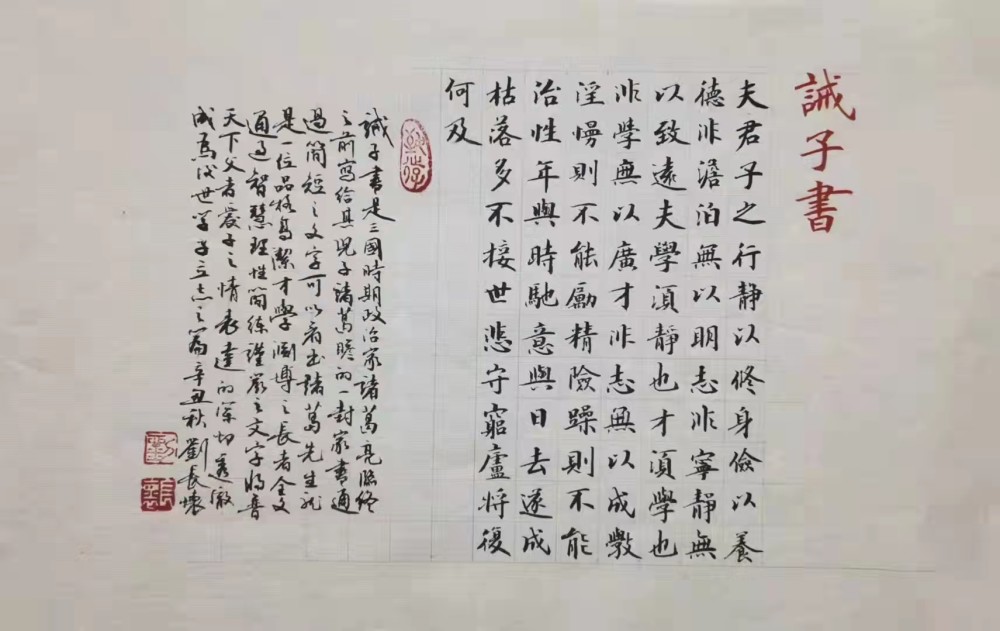 誡子書
夫君子之行静以修身儉以養
德非澹泊無以明志非寧静無
以致遠夫學須静也才須學也
非學無以廣才非志無以成學
淫慢則不能勵精險躁則不能
治性年與時馳意與日去遂成
枯落多不接世悲守窮廬將復
何及
誡子書是三國時期政治家諸葛亮臨終
之前寫给其兒子諸葛瞻的一封家書通
過简短之文字可以看出諸葛先生
是一位品格高潔才學淵博之長者全文
通過智慧理性简練谨嚴之文字將普
天下父者愛子之情表達的深切透徹
成為後世学子立志之篇辛丑秋劉長